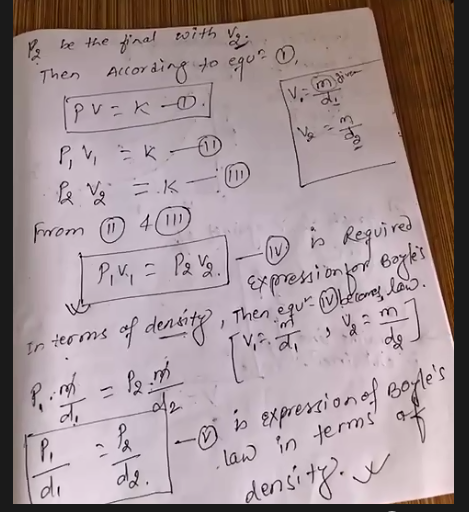 P₂ be the final with V₂.
Then According to equⁿ Ⓘ,
PV = K —Ⓘ.
V₁ = m/d₁ given
V₂ = m/d₂
P₁ V₁ = K —Ⓘⓘ
P₂ V₂ = K —(III)
From (II) & (III)
P₁V₁ = P₂V₂. —(IV) is Required
expression for Boyle's law.
In terms of density, Then equⁿ (IV) becomes
[V₁ = m/d₁ , V₂ = m/d₂]
P₁ · m/d₁ = P₂ · m/d₂
P₁/d₁ = P₂/d₂. —(V) is expression of Boyle's
law in terms of
density.